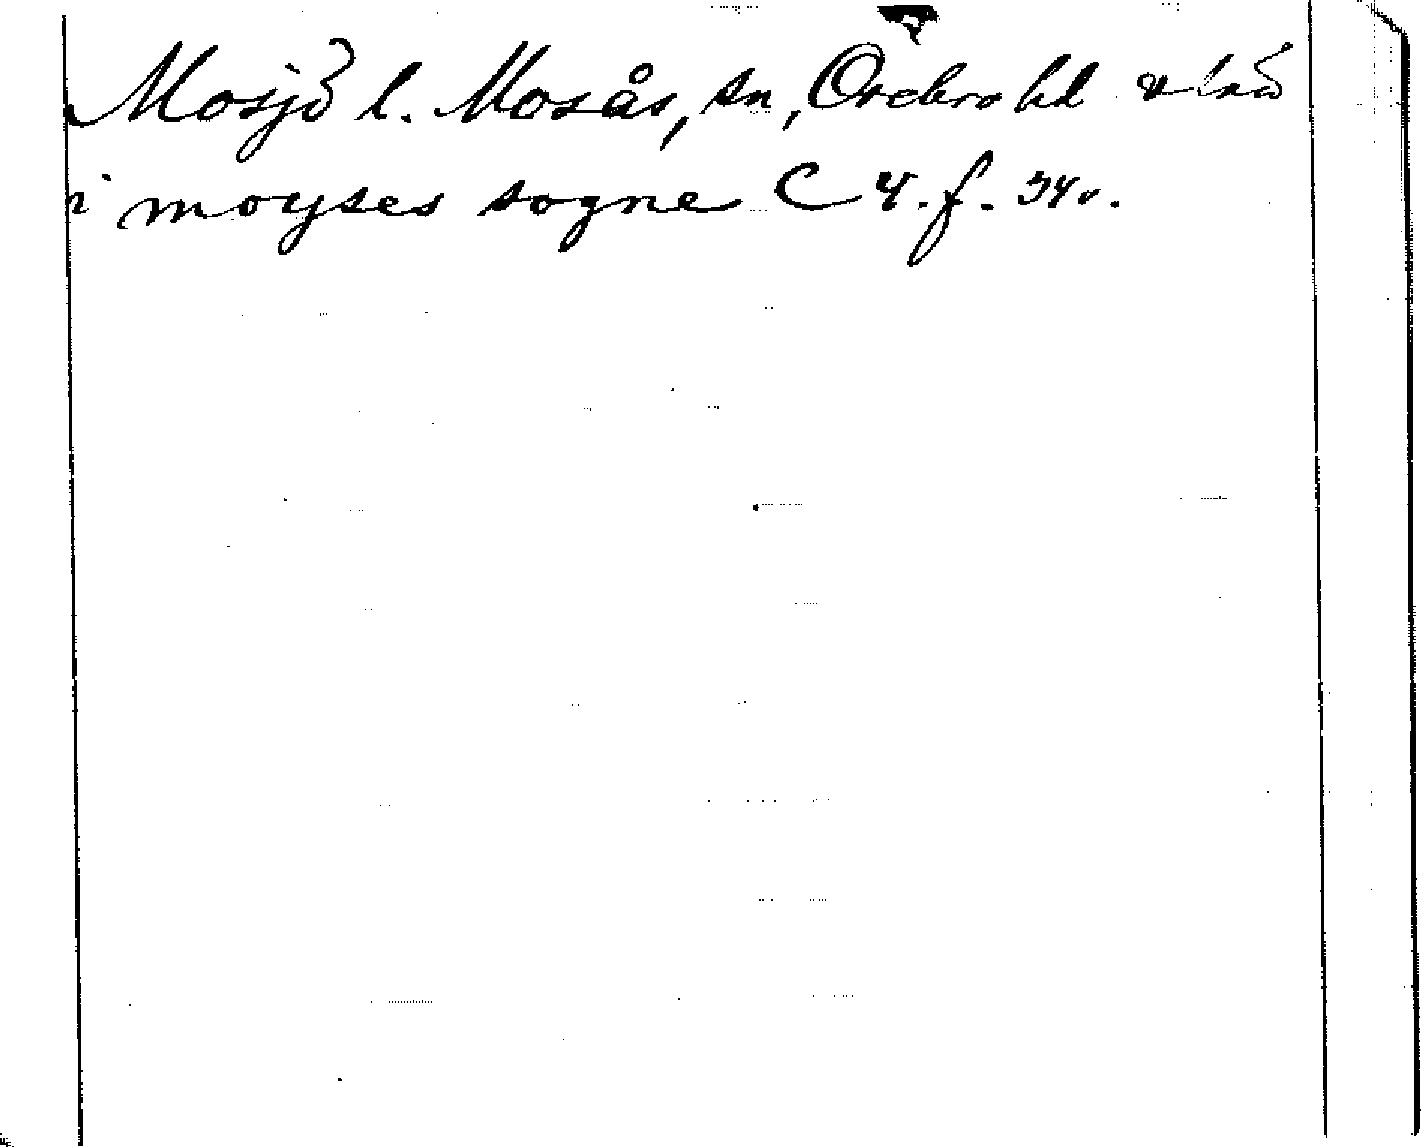 Mosjö l. Mosås, sn, Örebro hd & län
i moyses sogne C 4. f. 34v.